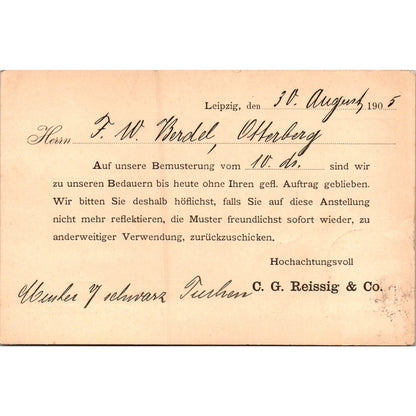 Leipzig, den 30. August 1905
Herrn F. W. Berdel, Otterberg
Auf unsere Bemusterung vom 10. ds. sind wir
zu unseren Bedauern bis heute ohne Ihren gefl. Auftrag geblieben.
Wir bitten Sie deshalb höflichst, falls Sie auf diese Anstellung
nicht mehr reflektieren, die Muster freundlichst sofort wieder, zu
anderweitiger Verwendung, zurückzuschicken.
Hochachtungsvoll
C. G. Reissig & Co.
Muster schwarz